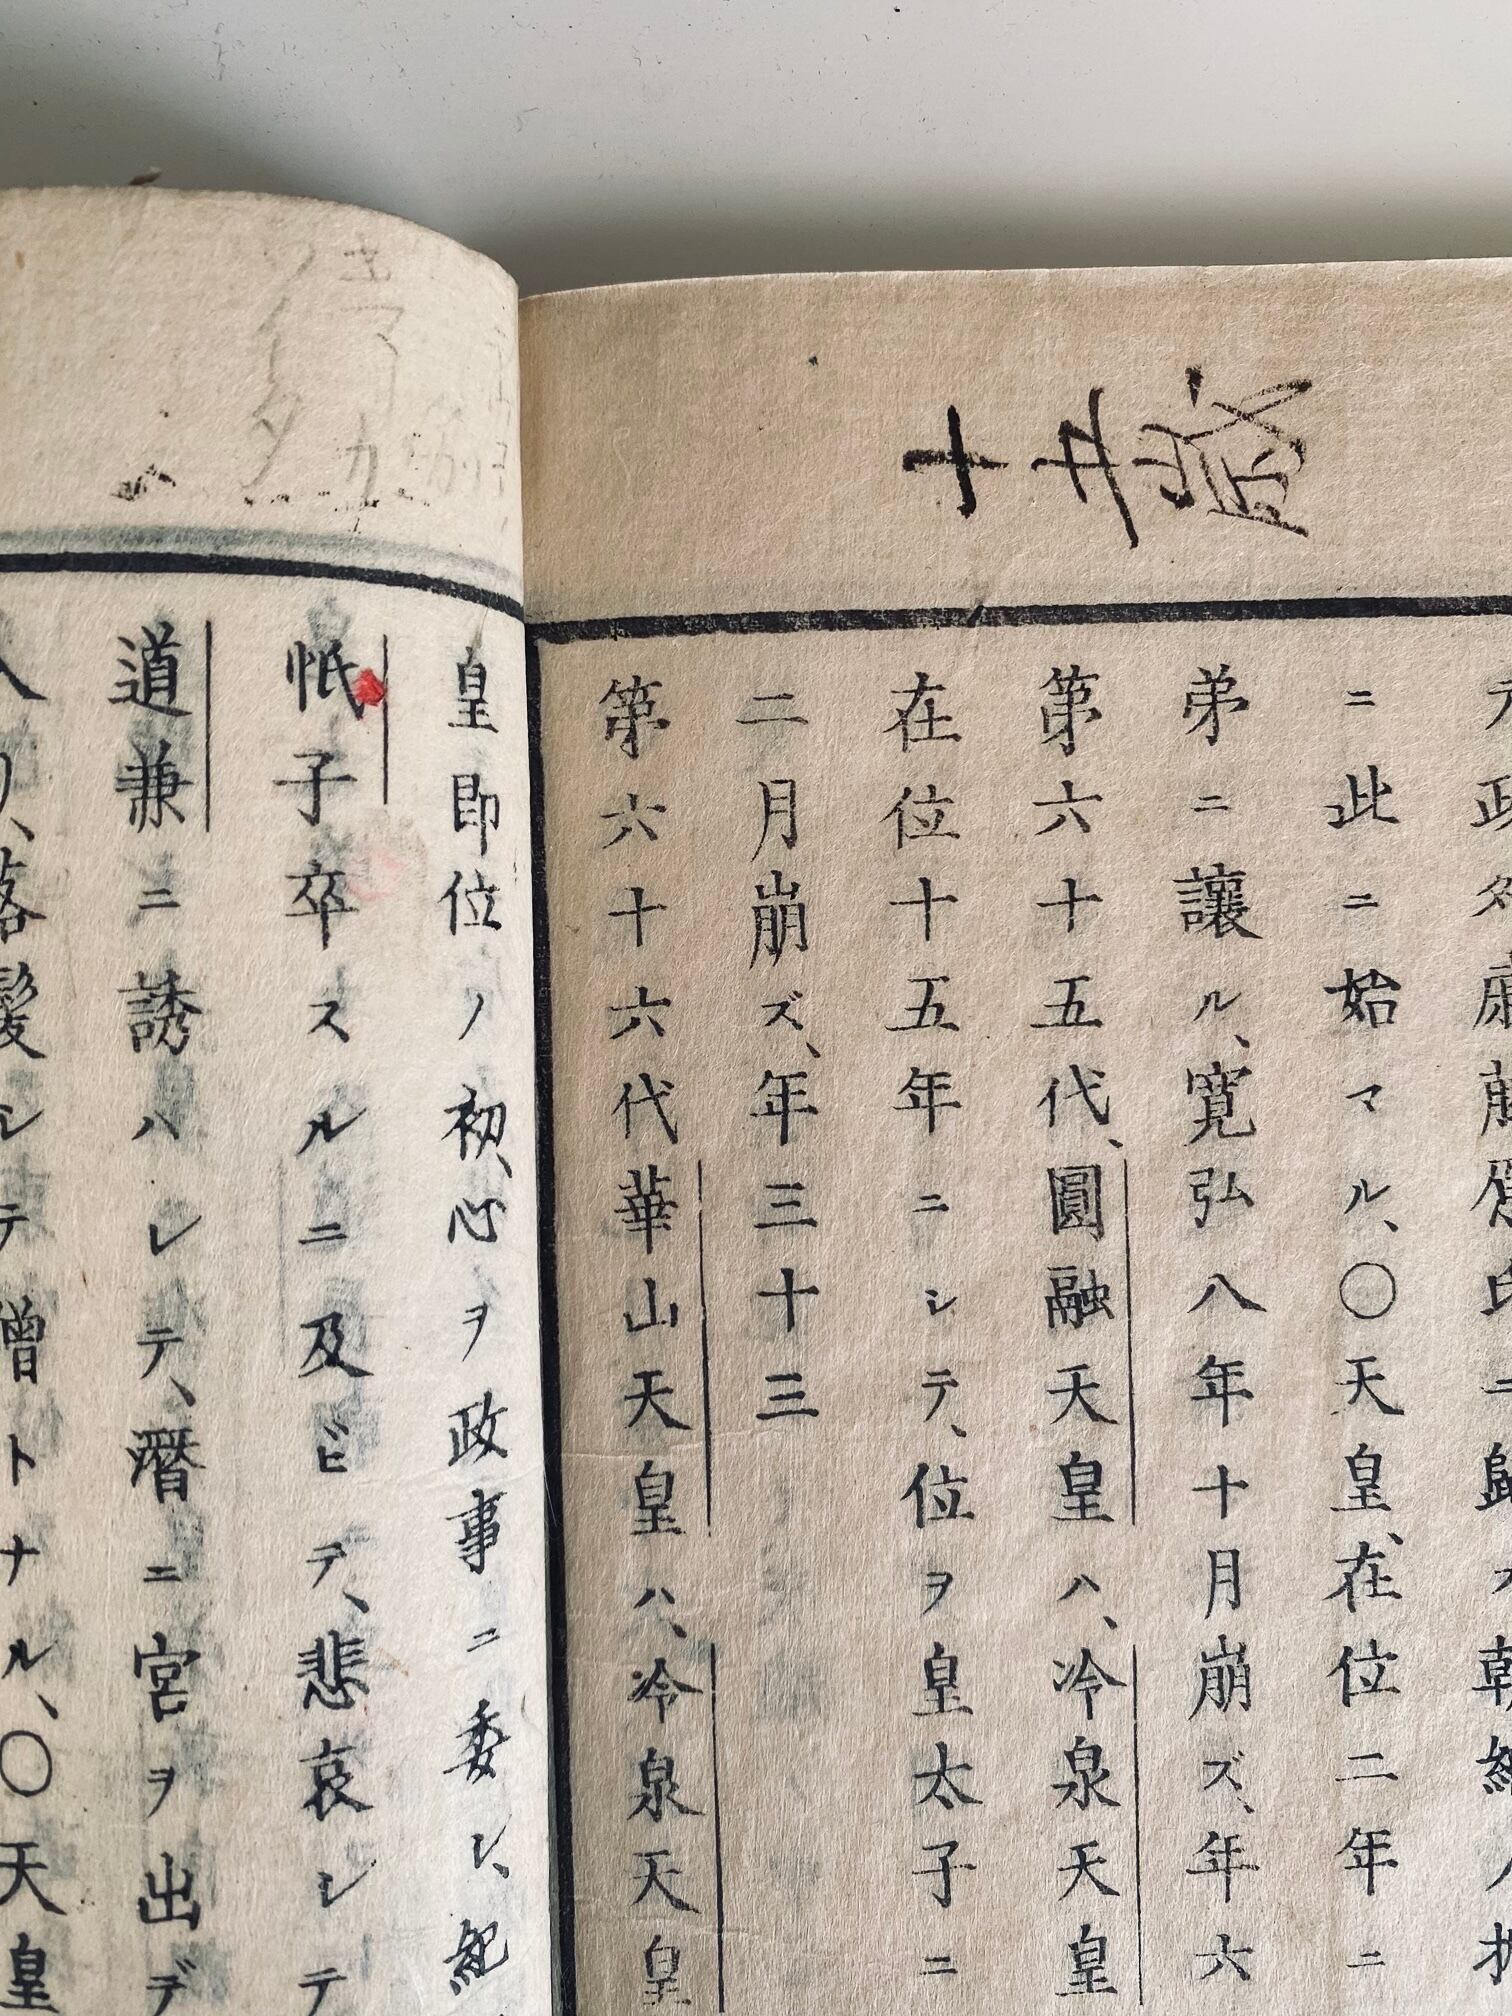 ニ此ニ始マル、〇天皇、在位二年ニ
弟ニ讓ル、寛弘八年十月崩ズ、年六
第六十五代、圓融天皇ハ、冷泉天皇
在位十五年ニシテ、位ヲ皇太子ニ
二月崩ズ、年三十三
第六十六代華山天皇ハ、冷泉天皇
皇即位ノ初、心ヲ政事ニ委シ、紀
忯子卒スルニ及ビテ、悲哀シテ
道兼ニ誘ハレテ、潛ニ宮ヲ出デ
リ、落髮シテ僧トナル、〇天皇